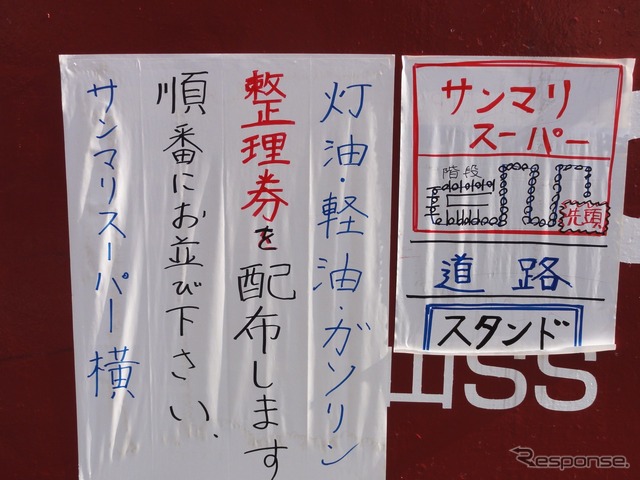 灯油・軽油・ガソリン
整理券を配布します
順番にお並び下さい、
サンマリスーパー横
サンマリ
スーパー
階段
先頭
道路
スタンド
SS
Response.